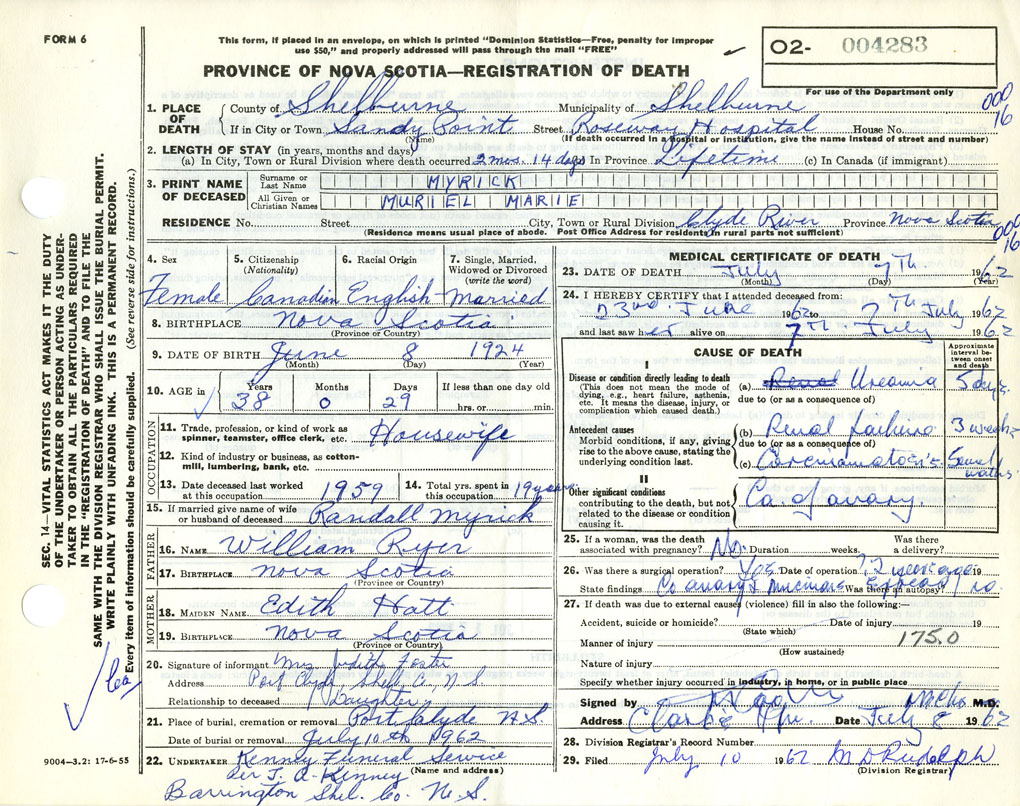 FORM 6
This form, if placed in an envelope, on which is printed "Dominion Statistics—Free, penalty for improper
use $50," and properly addressed will pass through the mail "FREE"
O2- 004283
For use of the Department only
PROVINCE OF NOVA SCOTIA—REGISTRATION OF DEATH
SEC. 14—VITAL STATISTICS ACT MAKES IT THE DUTY
OF THE UNDERTAKER OR PERSON ACTING AS UNDER-
TAKER TO OBTAIN ALL THE PARTICULARS REQUIRED
IN THE "REGISTRATION OF DEATH" AND TO FILE THE
SAME WITH THE DIVISION REGISTRAR WHO SHALL ISSUE THE BURIAL PERMIT.
WRITE PLAINLY WITH UNFADING INK. THIS IS A PERMANENT RECORD.
Every item of Information should be carefully supplied. (See reverse side for instructions.)
1. PLACE OF DEATH County of Shelburne Municipality of Shelburne
000 16
If in City or Town Sandy Point Street Roseway Hospital House No.
(Name) (If death occurred in a hospital or institution, give the name instead of street and number)
2. LENGTH OF STAY (in years, months and days)
(a) In City, Town or Rural Division where death occurred 2 mos. 14 days In Province Lifetime (c) In Canada (if immigrant)
3. PRINT NAME OF DECEASED Surname or Last Name MYRICK
All Given or Christian Names MURIEL MARIE
RESIDENCE No. Street City, Town or Rural Division Clyde River Province Nova Scotia
(Residence means usual place of abode. Post Office Address for residents in rural parts not sufficient)
000 16
4. Sex Female
5. Citizenship (Nationality) Canadian
6. Racial Origin English
7. Single, Married, Widowed or Divorced (write the word) Married
8. BIRTHPLACE Nova Scotia
(Province or Country)
9. DATE OF BIRTH June 8 1924
(Month) (Day) (Year)
10. AGE in Years 38 Months 0 Days 29 If less than one day old hrs. or min.
OCCUPATION
11. Trade, profession, or kind of work as spinner, teamster, office clerk, etc. Housewife
12. Kind of industry or business, as cotton-mill, lumbering, bank, etc.
13. Date deceased last worked at this occupation 1959
14. Total yrs. spent in this occupation 19 years
15. If married give name of wife or husband of deceased Randall Myrick
FATHER
16. NAME William Ryer
17. BIRTHPLACE Nova Scotia
(Province or Country)
MOTHER
18. MAIDEN NAME Edith Hatt
19. BIRTHPLACE Nova Scotia
(Province or Country)
20. Signature of informant Mrs Judith Foster
Address Port Clyde Shel. Co. N.S.
Relationship to deceased Daughter
21. Place of burial, cremation or removal Port Clyde N.S.
Date of burial or removal July 10th 1962
22. UNDERTAKER Kenney Funeral Service
per J. A. Kenney (Name and address)
Barrington Shel. Co. N.S.
9004—3.2: 17-6-55
MEDICAL CERTIFICATE OF DEATH
23. DATE OF DEATH July 7th 1962
(Month) (Day) (Year)
24. I HEREBY CERTIFY that I attended deceased from:
23rd June 1962 to 7th July 1962
and last saw her alive on 7th July 1962
CAUSE OF DEATH
Approximate interval between onset and death
I
Disease or condition directly leading to death
(This does not mean the mode of dying, e.g., heart failure, asthenia, etc. It means the disease, injury, or complication which caused death.)
(a) Renal Uraemia 5 days
due to (or as a consequence of)
Antecedent causes
Morbid conditions, if any, giving rise to the above cause, stating the underlying condition last.
(b) Renal failure 3 weeks
due to (or as a consequence of)
(c) Carcinomatosis
II
Other significant conditions
contributing to the death, but not related to the disease or condition causing it.
Ca. of ovary.
25. If a woman, was the death associated with pregnancy? No. Duration weeks. Was there a delivery?
26. Was there a surgical operation? Yes Date of operation 2 years ago 19
State findings Was there an autopsy? no
27. If death was due to external causes (violence) fill in also the following:—
Accident, suicide or homicide? Date of injury 19
(State which)
Manner of injury 175.0
(How sustained)
Nature of injury
Specify whether injury occurred in industry, in home, or in public place
Signed by M.D.
Address Date July 8 1962
28. Division Registrar's Record Number
29. Filed July 10 1962 M D Rudolph
(Division Registrar)